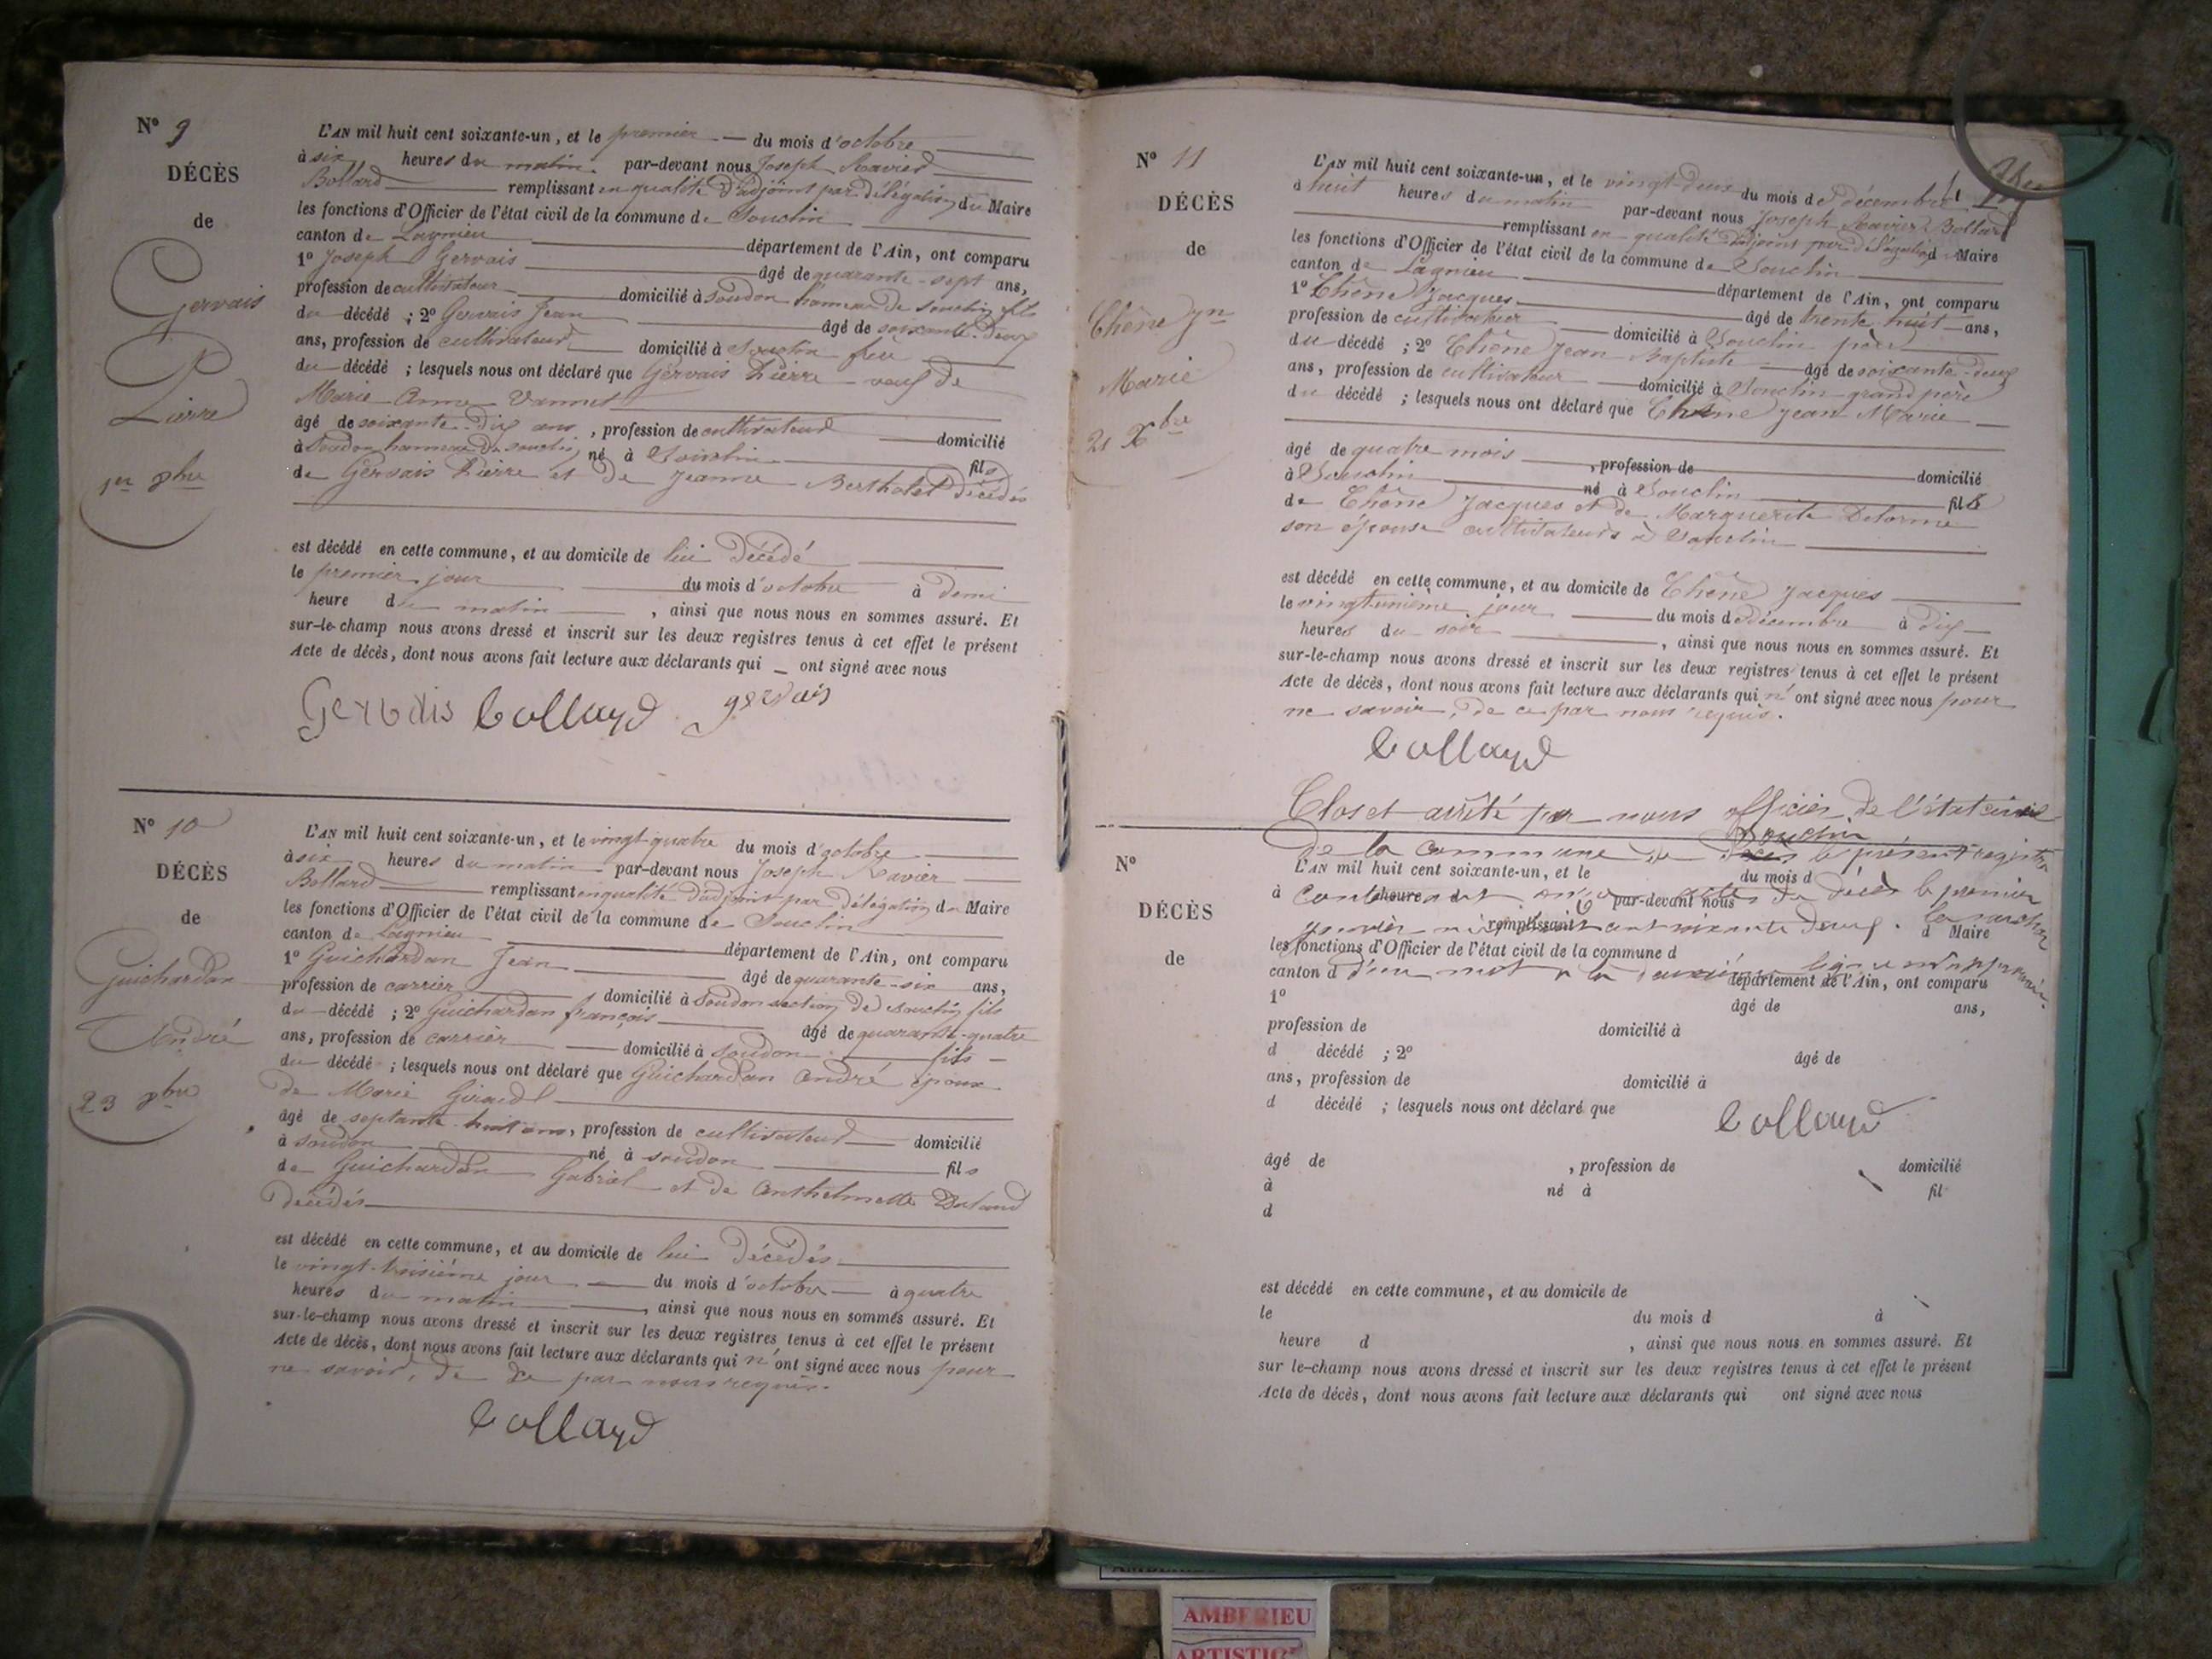 N° 9
DÉCÈS
de
Gervais
Pierre
1er 8bre
L'AN mil huit cent soixante-un, et le premier du mois d'octobre
à six heures du matin par-devant nous Joseph Xavier
Bollard remplissant en qualité d'adjoint par délégation du Maire
les fonctions d'Officier de l'état civil de la commune de Souclin
canton de Lagnieu département de l'Ain, ont comparu
1° Joseph Gervais âgé de quarante-sept ans,
profession de cultivateur domicilié à Soudon hameau de Souclin fils
du décédé ; 2° Gervais Jean âgé de soixante-deux
ans, profession de cultivateur domicilié à Souclin
du décédé ; lesquels nous ont déclaré que Gervais Pierre veuf de
Marie Anne Vannet
âgé de soixante-dix ans, profession de cultivateur domicilié
à Soudon hameau de Souclin né à Souclin fils
de Gervais Pierre et de Jeanne Bertholet décédés
est décédé en cette commune, et au domicile de lui décédé
le premier jour du mois d'octobre à demi
heure du matin, ainsi que nous nous en sommes assuré. Et
sur-le-champ nous avons dressé et inscrit sur les deux registres tenus à cet effet le présent
Acte de décès, dont nous avons fait lecture aux déclarants qui ont signé avec nous
Gervais Bollard gervais
N° 10
DÉCÈS
de
Guichardan
André
23 8bre
L'AN mil huit cent soixante-un, et le vingt-quatre du mois d'octobre
à six heures du matin par-devant nous Joseph Xavier
Bollard remplissant en qualité d'adjoint par délégation du Maire
les fonctions d'Officier de l'état civil de la commune de Souclin
canton de Lagnieu département de l'Ain, ont comparu
1° Guichardan Jean âgé de quarante-six ans,
profession de carrier domicilié à Soudon section de Souclin fils
du décédé ; 2° Guichardan françois âgé de quarante-quatre
ans, profession de carrier domicilié à Soudon fils
du décédé ; lesquels nous ont déclaré que Guichardan André époux
de Marie Giraud
âgé de septante-huit ans, profession de cultivateur domicilié
à Soudon né à Soudon fils
de Guichardan Gabriel et de Anthelmette
décédés
est décédé en cette commune, et au domicile de lui décédés
le vingt-troisième jour du mois d'octobre à quatre
heures du matin, ainsi que nous nous en sommes assuré. Et
sur-le-champ nous avons dressé et inscrit sur les deux registres tenus à cet effet le présent
Acte de décès, dont nous avons fait lecture aux déclarants qui n'ont signé avec nous pour
ne savoir, de ce par nous requis.
Bollard
N° 11
DÉCÈS
de
Chêne Jn
Marie
21 Xbre
L'AN mil huit cent soixante-un, et le vingt-deux du mois de décembre
à huit heures du matin par-devant nous Joseph Xavier Bollard
remplissant en qualité d'adjoint par délégation d Maire
les fonctions d'Officier de l'état civil de la commune de Souclin
canton de Lagnieu département de l'Ain, ont comparu
1° Chêne Jacques âgé de trente-huit ans,
profession de cultivateur domicilié à Souclin père
du décédé ; 2° Chêne Jean Baptiste âgé de soixante-deux
ans, profession de cultivateur domicilié à Souclin grand père
du décédé ; lesquels nous ont déclaré que Chêne Jean Marie
âgé de quatre mois, profession de domicilié
à Souclin né à Souclin fils
de Chêne Jacques et de Marguerite Delorme
son épouse cultivateurs à Souclin
est décédé en cette commune, et au domicile de Chêne Jacques
le vingtunième jour du mois de décembre à dix
heures du soir, ainsi que nous nous en sommes assuré. Et
sur-le-champ nous avons dressé et inscrit sur les deux registres tenus à cet effet le présent
Acte de décès, dont nous avons fait lecture aux déclarants qui n'ont signé avec nous pour
ne savoir, de ce par nous requis.
Bollard
Clos et arrêté par nous officier de l'état civil
de la commune de Souclin le présent registre
contenant onze actes de décès le premier
janvier mil huit cent soixante deux.
d'un mot à la
N°
DÉCÈS
de
L'AN mil huit cent soixante-un, et le du mois d
à heure d par-devant nous
remplissant d Maire
les fonctions d'Officier de l'état civil de la commune d
canton d département de l'Ain, ont comparu
1° âgé de ans,
profession de domicilié à
d décédé ; 2° âgé de
ans, profession de domicilié à
d décédé ; lesquels nous ont déclaré que
Bollard
âgé de , profession de domicilié
à né à fil
d
est décédé en cette commune, et au domicile de
le du mois d à
heure d , ainsi que nous nous en sommes assuré. Et
sur le-champ nous avons dressé et inscrit sur les deux registres tenus à cet effet le présent
Acte de décès, dont nous avons fait lecture aux déclarants qui ont signé avec nous
AMBERIEU
ARTISTIQ